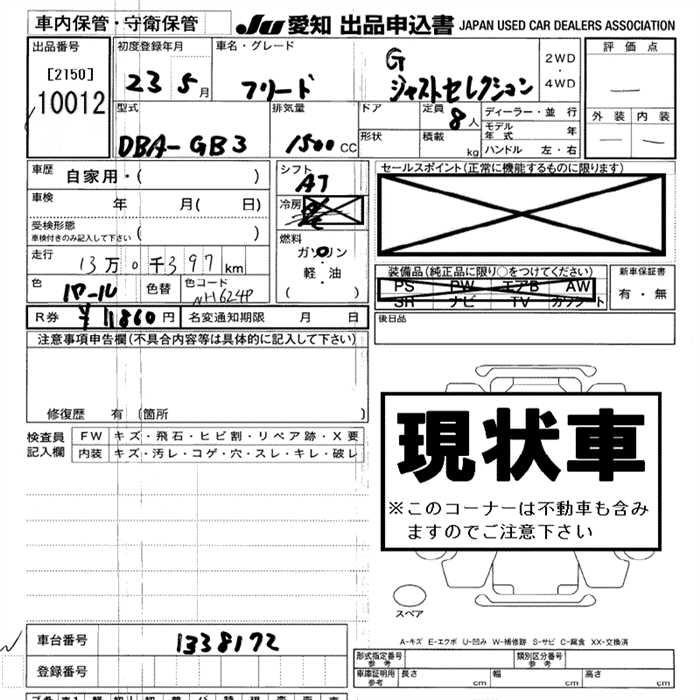 車内保管・守衛保管 JU 愛知 出品申込書 JAPAN USED CAR DEALERS ASSOCIATION
出品番号 初度登録年月 車名・グレード 評価点
[2150] 23 5月 フリード G ジャストセレクション 2WD・4WD —
10012
型式 排気量 ドア 定員 ディーラー・並行 外装 内装
DBA-GB3 1500CC 8人 モデル年式 年 — —
形状 積載 kg ハンドル 左・右
車歴 自家用・( ) シフト AT セールスポイント(正常に機能するものに限ります)
車検 年 月( 日) 冷房
受検形態 ( )
車検付きのみ記入して下さい
燃料
走行 13万0千397km ガソリン・軽・油
( )
装備品(純正品に限り○をつけてください) 新車保証書
色 パール 色替 色コード NH624P PS PW エアB AW 有・無
SR ナビ TV カワシート
R券 ¥11860円 名変通知期限 月 日 後日品
注意事項申告欄(不具合内容等は具体的に記入して下さい)
修復歴 有 [箇所 ]
検査員記入欄 FW キズ・飛石・ヒビ割・リペア跡・X要
内装 キズ・汚レ・コゲ・穴・スレ・キレ・破レ
現状車
※このコーナーは不動車も含み
ますのでご注意下さい
スペア
A-キズ E-エクボ U-凹み W-補修跡 S-サビ C-腐食 XX-交換済
車台番号 1338172
登録番号
形式指定番号 参考 類別区分番号 参考
車庫証明用 参考 長さ cm 幅 cm 高さ cm